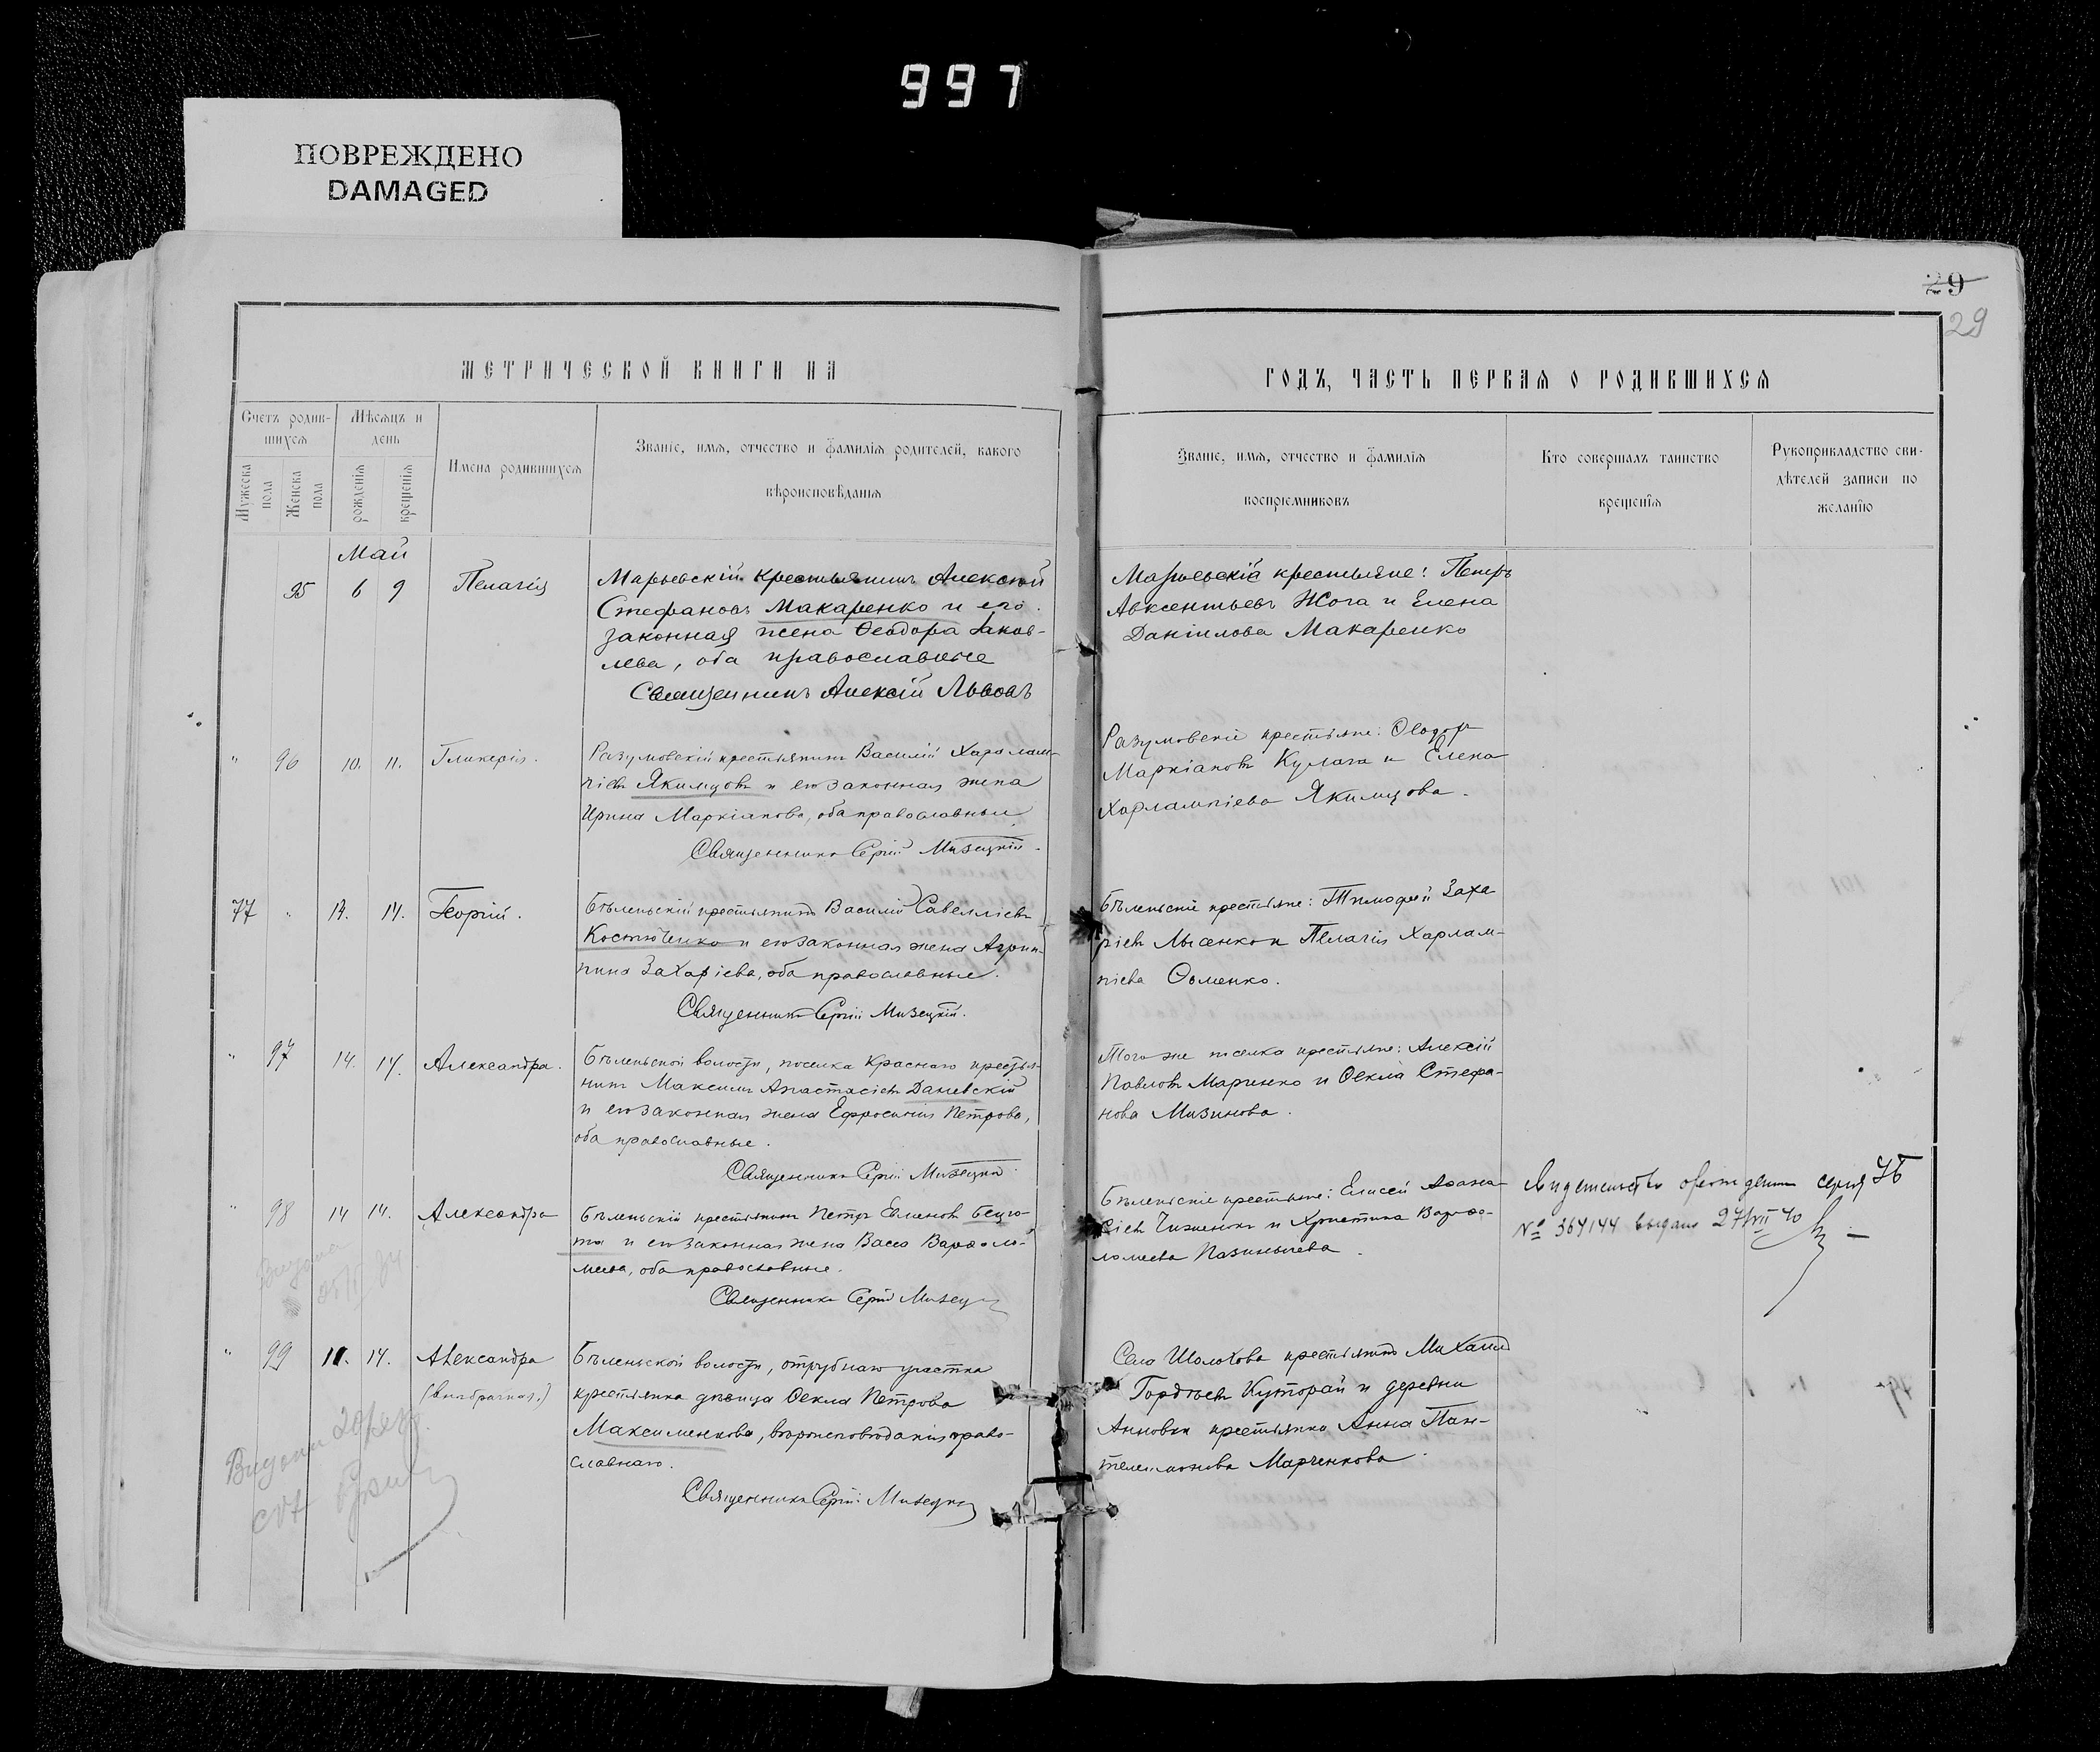 997
ПОВРЕЖДЕНО
DAMAGED
29
29
МЕТРИЧЕСКОЙ КНИГИ НА
Счетъ родив-
шихся
Мѣсяцъ и
день
Мужеска
пола
Женска
пола
рожденія
крещенія
Имена родившихся
Званіе, имя, отчество и фамилія родителей, какого
вѣроисповѣданія
Май
95 6 9 Пелагія
Марьевскій крестьянинъ Алексѣй
Стефановъ Макаренко и его
законная жена Ѳеодора Іаков-
лева, оба православные
Священникъ Алексій Львовъ
" 96 10. 11. Гликерія.
Разумовскій крестьянинъ Василій Харалам-
піевъ Якимцовъ и его законная жена
Ирина Маркіанова, оба православные
Священникъ Сергій Мизецкій.
77 " 13. 14. Георгій.
Бѣленьскій крестьянинъ Василій Савелліевъ
Костюченко и его законная жена Агрип-
пина Захаріева, оба православные.
Священникъ Сергій Мизецкій.
" 97 14. 14. Александра.
Бѣленьской волости, поселка Краснаго крестья-
нинъ Максимъ Анастасіевъ Даневскій
и его законная жена Ефросинія Петрова,
оба православные.
Священникъ Сергій Мизецкій
" 98 14 14. Александра
Бѣленьскій крестьянинъ Петръ Евменовъ
и его законная жена Васса Варѳоло-
меева, оба православные.
Священникъ Сергій Мизецкій
" 99 11. 14. Александра
(внѣбрачная.)
Бѣленьской волости, отрубнаго участка
крестьянка дѣвица Ѳекла Петрова
Максименкова, вѣроисповѣданія право-
славнаго.
Священникъ Сергій Мизецкій
ГОДЪ, ЧАСТЬ ПЕРВАЯ О РОДИВШИХСЯ
Званіе, имя, отчество и фамилія
воспріемниковъ
Кто совершалъ таинство
крещенія
Рукоприкладство сви-
дѣтелей записи по
желанію
Марьевскіе крестьяне: Петръ
Авксентьевъ Жога и Елена
Даніилова Макаренко
Разумовскіе крестьяне: Ѳеодоръ
Маркіановъ Кулага и Елена
Харлампіева Якимцова.
Бѣленьскіе крестьяне: Тимофей Заха
ріевъ Лысенко и Пелагія Харлам-
піева Ѳоменко.
Того же поселка крестьяне: Алексій
Павловъ Марченко и Ѳекла Стефа-
нова Мизинова.
Бѣленьскіе крестьяне: Елисей Аѳана-
сіевъ Чиженокъ и Христина Варѳо-
ломеева
Свидетельство о рождении серия УБ
№ 364144 выдано 27/VII 40
Села Шолохова крестьянинъ Михаилъ
Гордѣевъ и деревни
Анновки крестьянка Анна Пан-
телеимонова Марченкова.